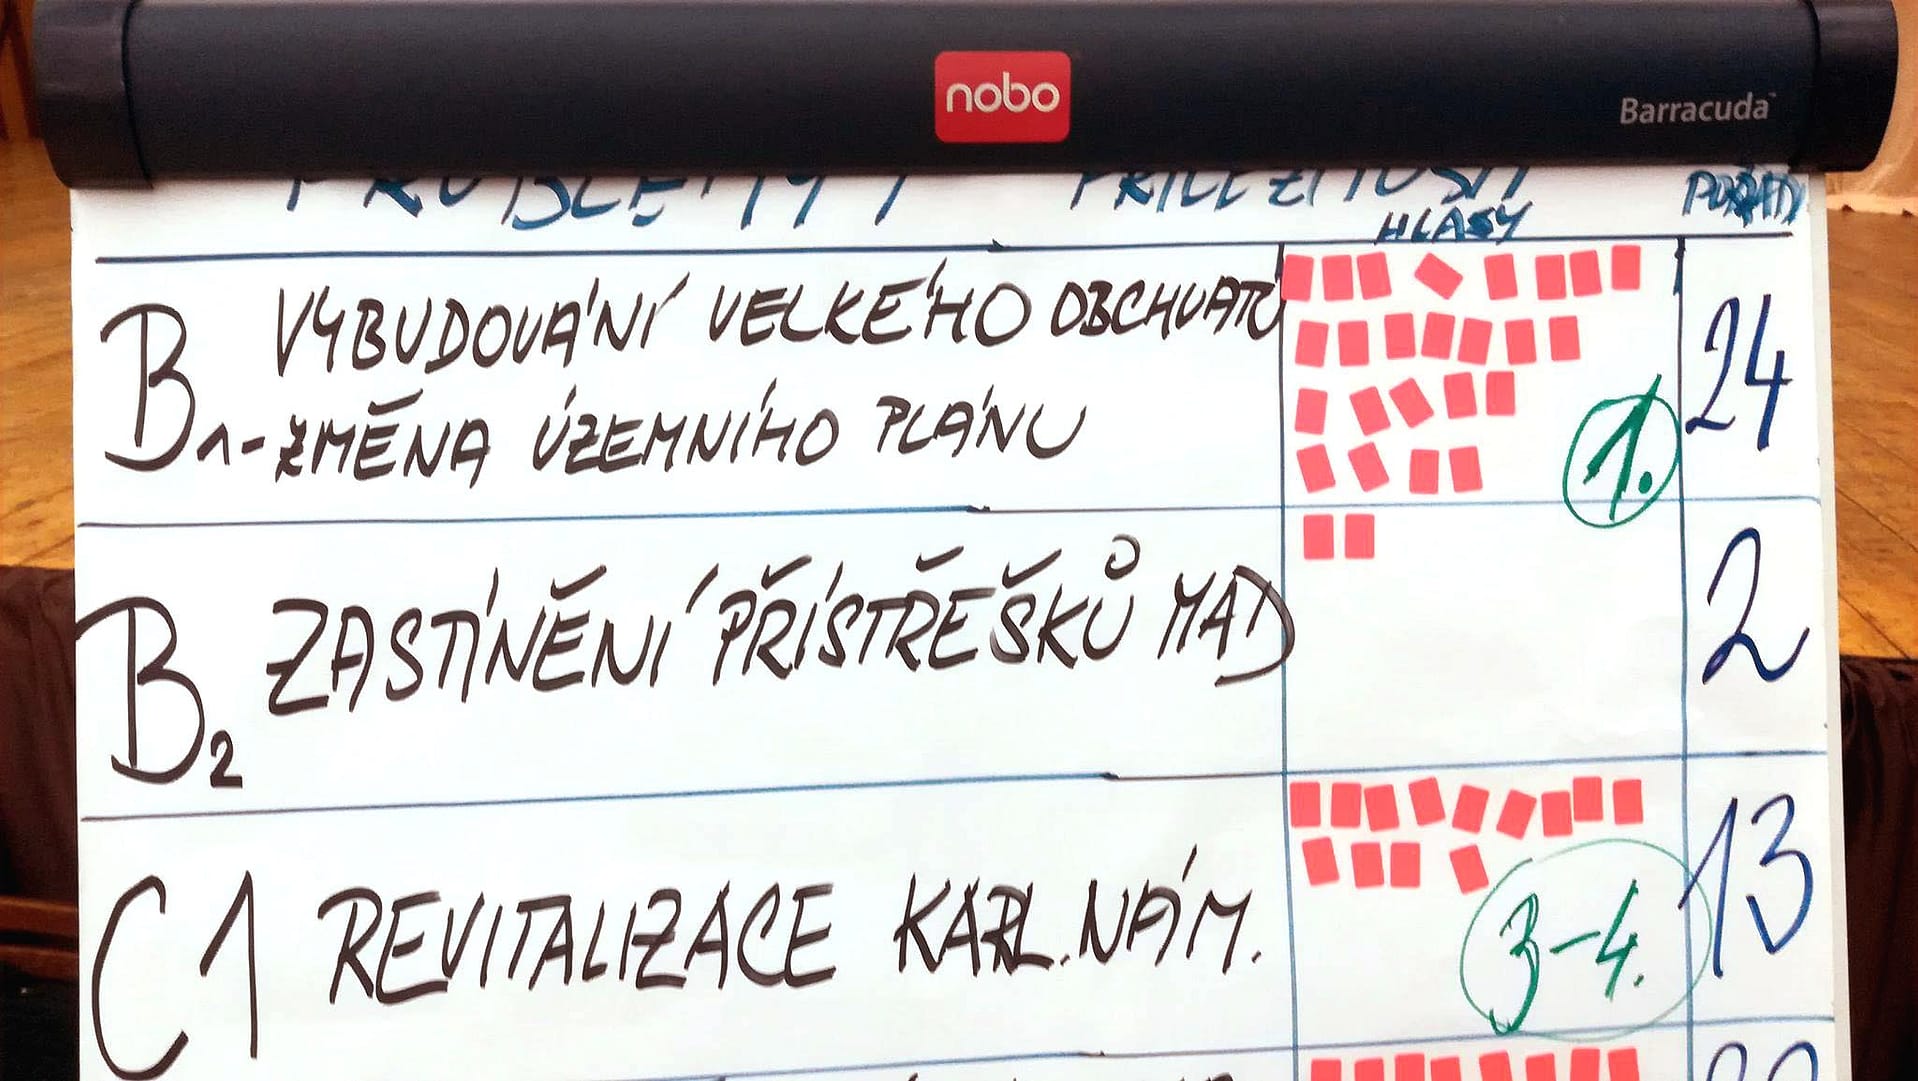 nobo
Barracuda
PROBLÉMY / PŘÍLEŽITOSTI
HLASY
POŘADÍ
B1 VYBUDOVÁNÍ VELKÉHO OBCHVATU
- ZMĚNA ÚZEMNÍHO PLÁNU
1.
24
B2 ZASTÍNĚNÍ PŘÍSTŘEŠKŮ MAD
2
C1 REVITALIZACE KARL. NÁM.
3-4.
13